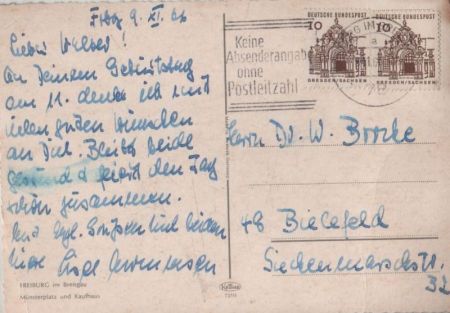 Frbg 9. XI. 66
Lieber Walter!
An Deinem Geburtstag
am 11. denke ich mit
vielen guten Wünschen
an Dich. Bleibt beide
gesund & feiert den Tag
schön zusammen.
Mit hzl. Grüßen Euch beiden
FREIBURG im Breisgau
Münsterplatz und Kaufhaus
Keine
Absenderangabe
ohne
Postleitzahl
DEUTSCHE BUNDESPOST
10
DRESDEN/SACHSEN
DEUTSCHE BUNDESPOST
10
DRESDEN/SACHSEN
Herrn Dr. W. Brocke
48 Bielefeld
Siechenmarschstr.
32